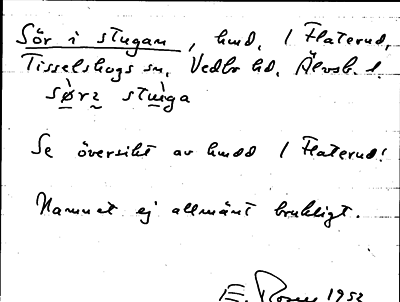 Sör i stugan, hmd, i Flaterud,
Tisselskogs sn. Vedbo hd. Älvsb. l.
sø̀rɿ stùga
Se översikt av hmdd i Flaterud!
Namnet ej allmänt brukligt.
E. Rosen 1952